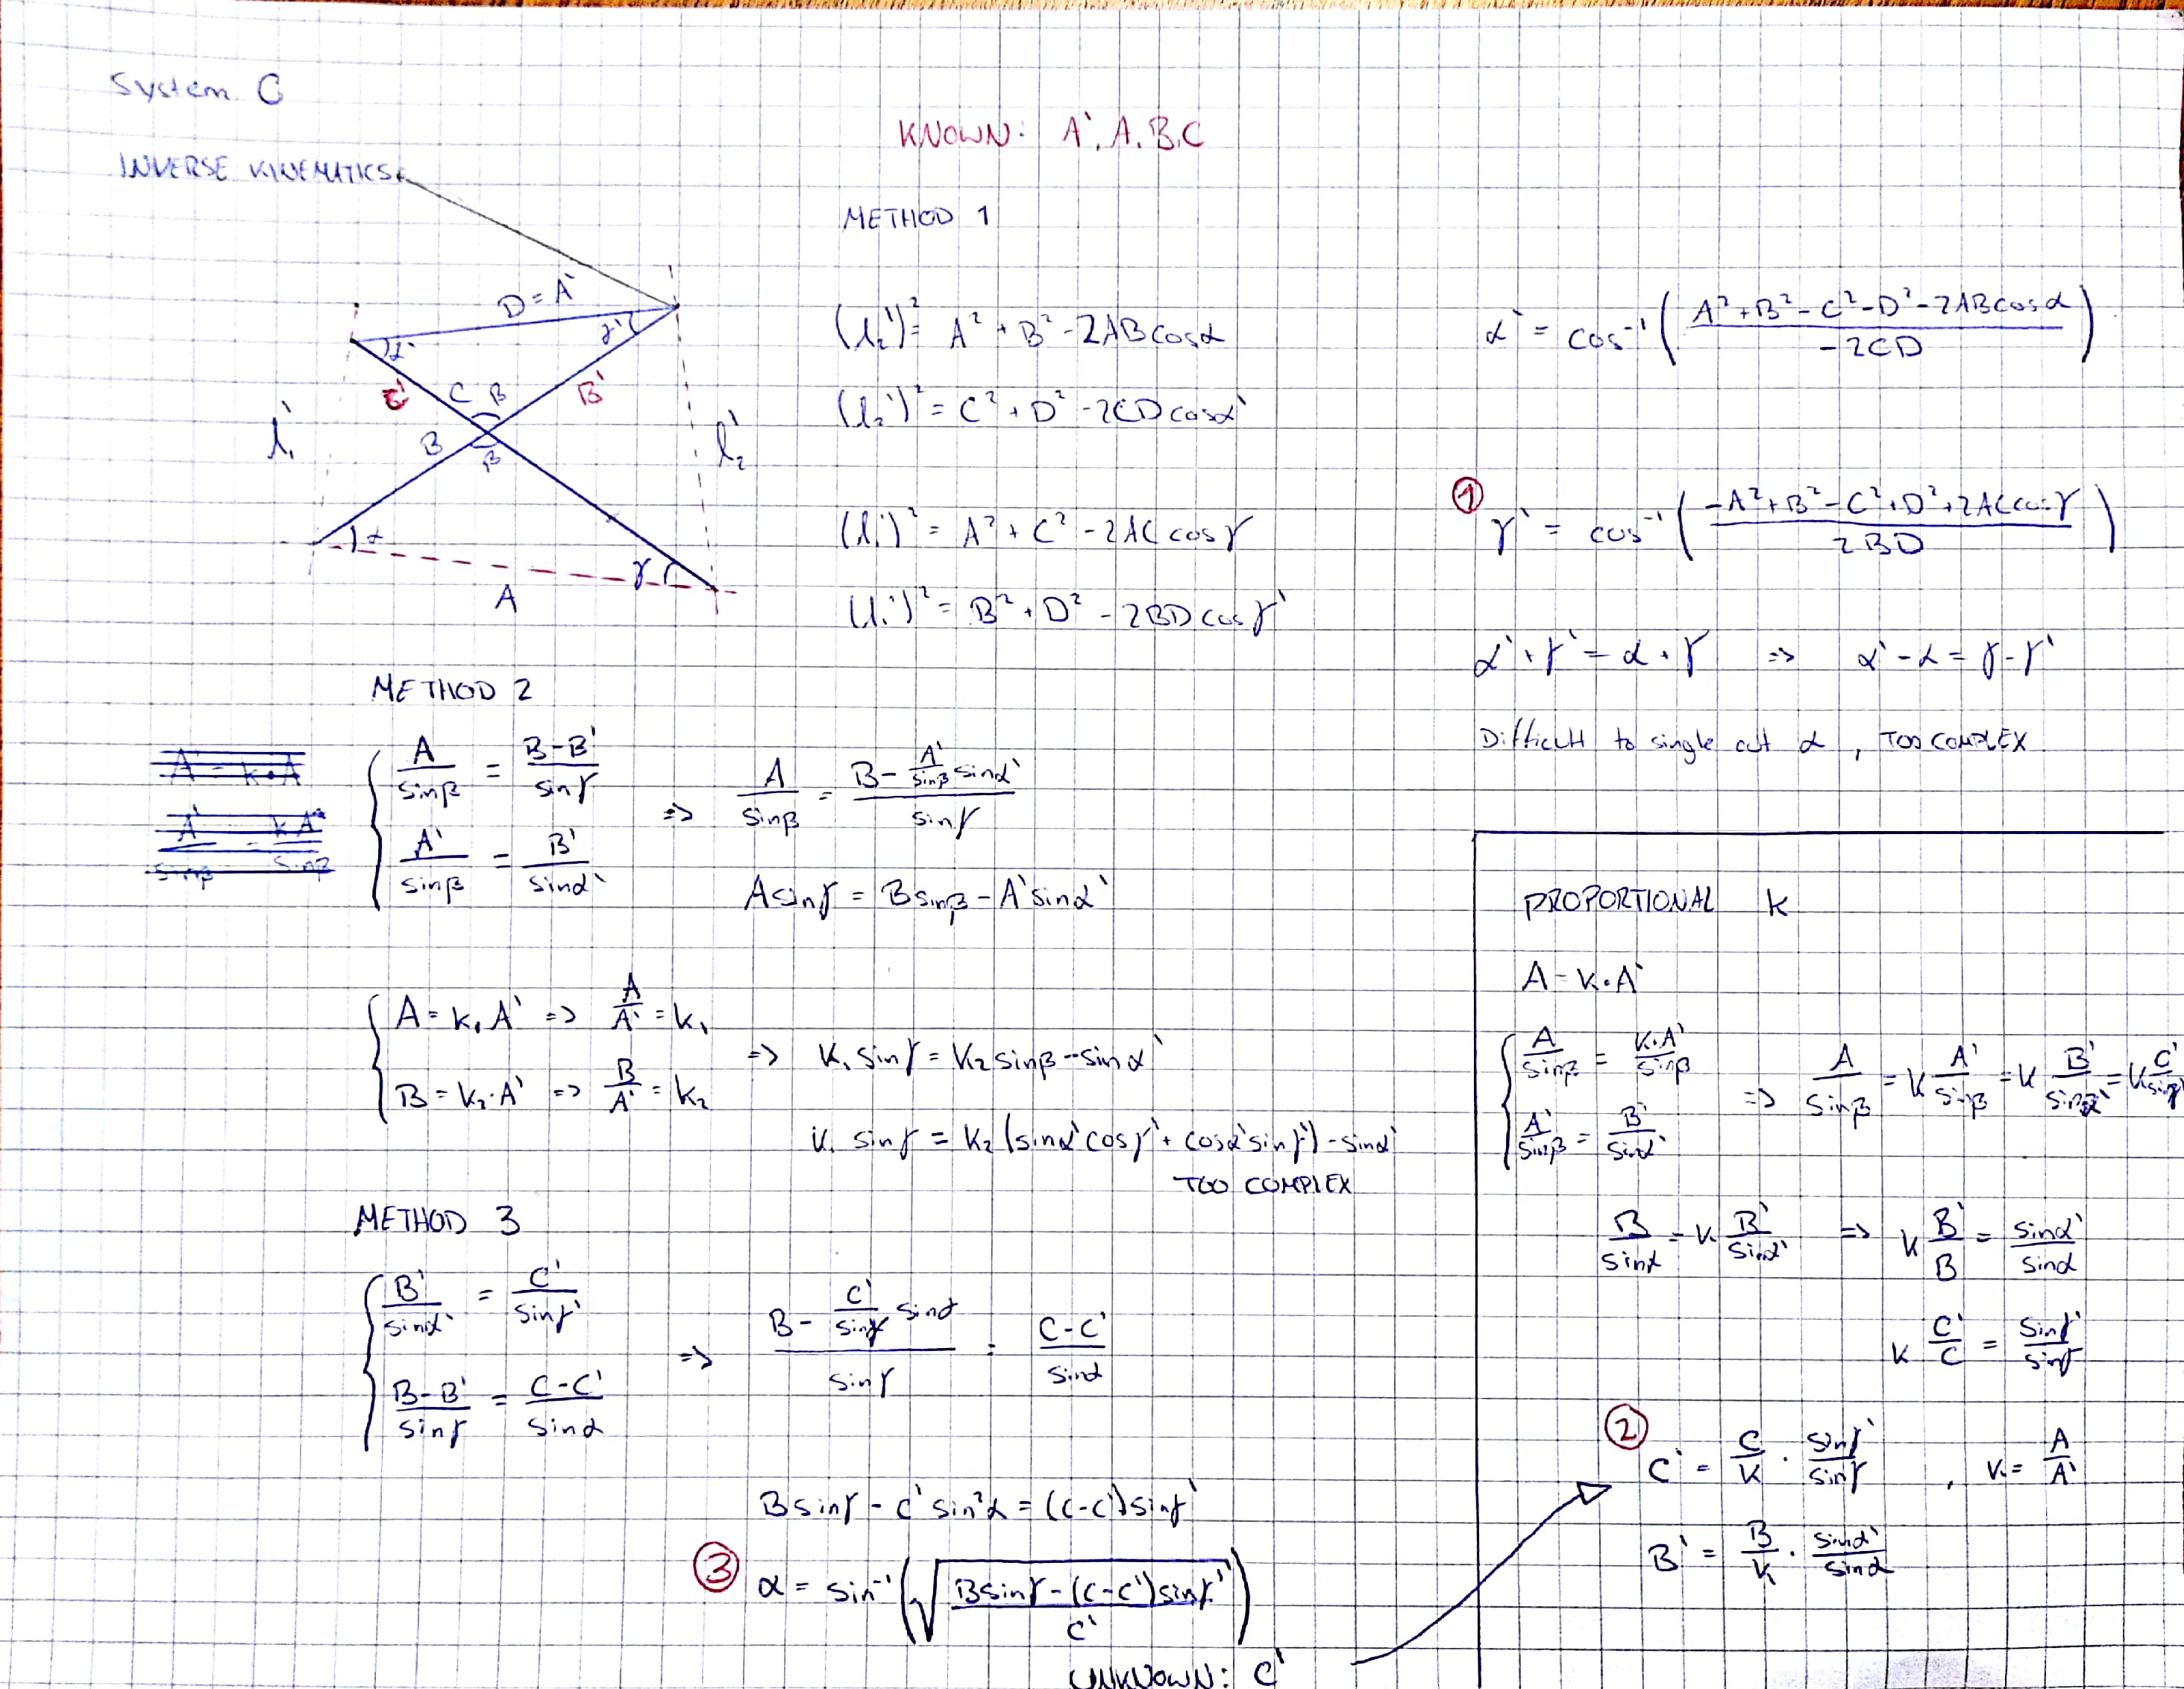 System C
INVERSE KINEMATICS
D = A'
α'
γ'
C'
C
B
β
B'
l₁'
B
β
l₂'
α
γ
A
KNOWN: A', A, B, C
METHOD 1
(l₂')² = A² + B² - 2AB cosα
(l₂')² = C² + D² - 2CD cosα'
(l₁')² = A² + C² - 2AC cosγ
(l₁')² = B² + D² - 2BD cosγ'
α' = cos⁻¹((A² + B² - C² - D² - 2ABcosα)/(-2CD))
① γ' = cos⁻¹((-A² + B² - C² + D² + 2ACcosγ)/(2BD))
α' + γ' = α + γ => α' - α = γ - γ'
Difficult to single out α, TOO COMPLEX
METHOD 2
A = k·A
A'/sinβ = kA/sinβ
{ A/sinβ = (B-B')/sinγ
{ A'/sinβ = B'/sinα'
=> A/sinβ = (B - (A'/sinβ) sinα')/sinγ
Asinγ = Bsinβ - A'sinα'
{ A = k₁ A' => A/A' = k₁
{ B = k₂·A' => B/A' = k₂
=> k₁ sinγ = k₂ sinβ - sinα'
k₁ sinγ = k₂ (sinα'cosγ' + cosα'sinγ') - sinα'
TOO COMPLEX
METHOD 3
{ B'/sinα' = C'/sinγ'
{ (B-B')/sinγ = (C-C')/sinα
=> (B - (C'/sinγ) sinα)/sinγ = (C-C')/sinα
Bsinγ - C' sin²α = (C-C')sinγ'
③ α = sin⁻¹(√((Bsinγ - (C-C')sinγ')/C'))
UNKNOWN: C'
PROPORTIONAL k
A = k·A'
{ A/sinβ = k·A'/sinβ
{ A'/sinβ = B'/sinα'
=> A/sinβ = k A'/sinβ = k B'/sinα' = k C'/sinγ'
B/sinα = k B'/sinα' => k B'/B = sinα'/sinα
k C'/C = sinγ'/sinγ
② C' = C/k · sinγ'/sinγ , k = A/A'
B' = B/k · sinα'/sinα